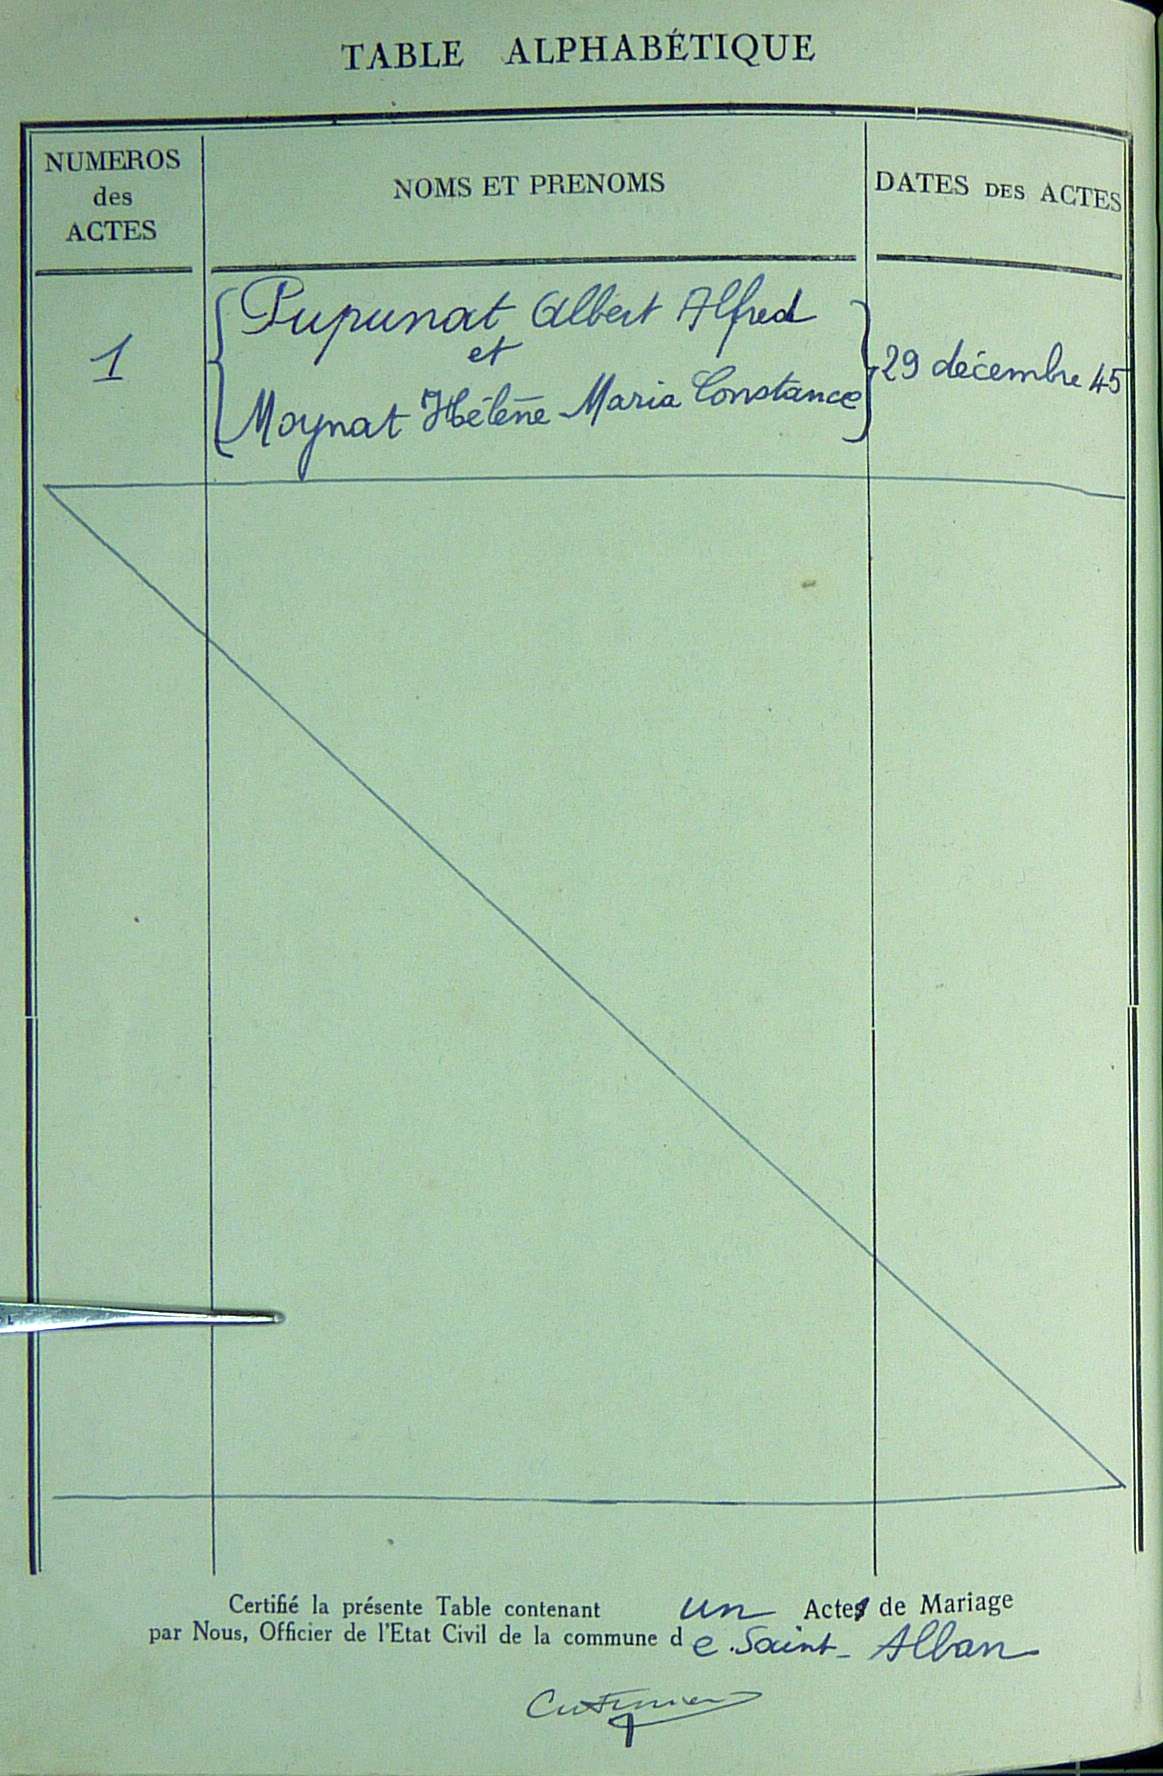 TABLE ALPHABÉTIQUE
NUMEROS
des
ACTES
NOMS ET PRENOMS
DATES DES ACTES
1
Pupunat Albert Alfred
et
Moynat Hélène Maria Constance
29 décembre 45
Certifié la présente Table contenant un Acte de Mariage
par Nous, Officier de l'Etat Civil de la commune de Saint-Alban